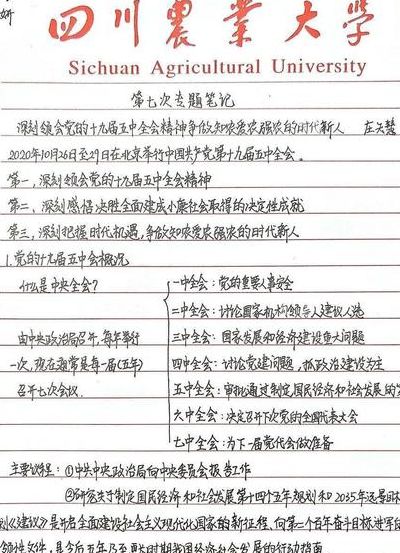 妍
四川農業大學
Sichuan Agricultural University
第七次专题笔记
深刻领会党的十九届五中全会精神争做知农爱农强农的时代新人 庄天慧
2020年10月26日至29日在北京举行中国共产党第十九届五中全会。
第一，深刻领会党的十九届五中全会精神
第二，深刻感悟决胜全面建成小康社会取得的决定性成就
第三，深刻把握时代机遇，争做知农爱农强农的时代新人
1.党的十九届五中全会概况
什么是中央全会？
由中央政治局召开，每年举行
一次，现在通常是每一届（五年）
召开七次会议.
一中全会：党的重要人事安全
二中全会：讨论国家机构领导人建议人选
三中全会：国家发展和经济建设重大问题
四中全会：讨论党建问题，抓政治建设为主
五中全会：审批通过制定国民经济和社会发展的
六中全会：决定召开下次党的全国代表大会
七中全会：为下一届党代会做准备
主要议程：①中共中央政治局向中央委员会报告工作
②研究关于制定国民经济和社会发展第十四个五年规划和2035年远景目标
《建议》是开启全面建设社会主义现代化国家的新征程，向第二个百年奋斗目标进军的
领性文件，是今后五年乃至更长时期我国经济社会发展的行动指南